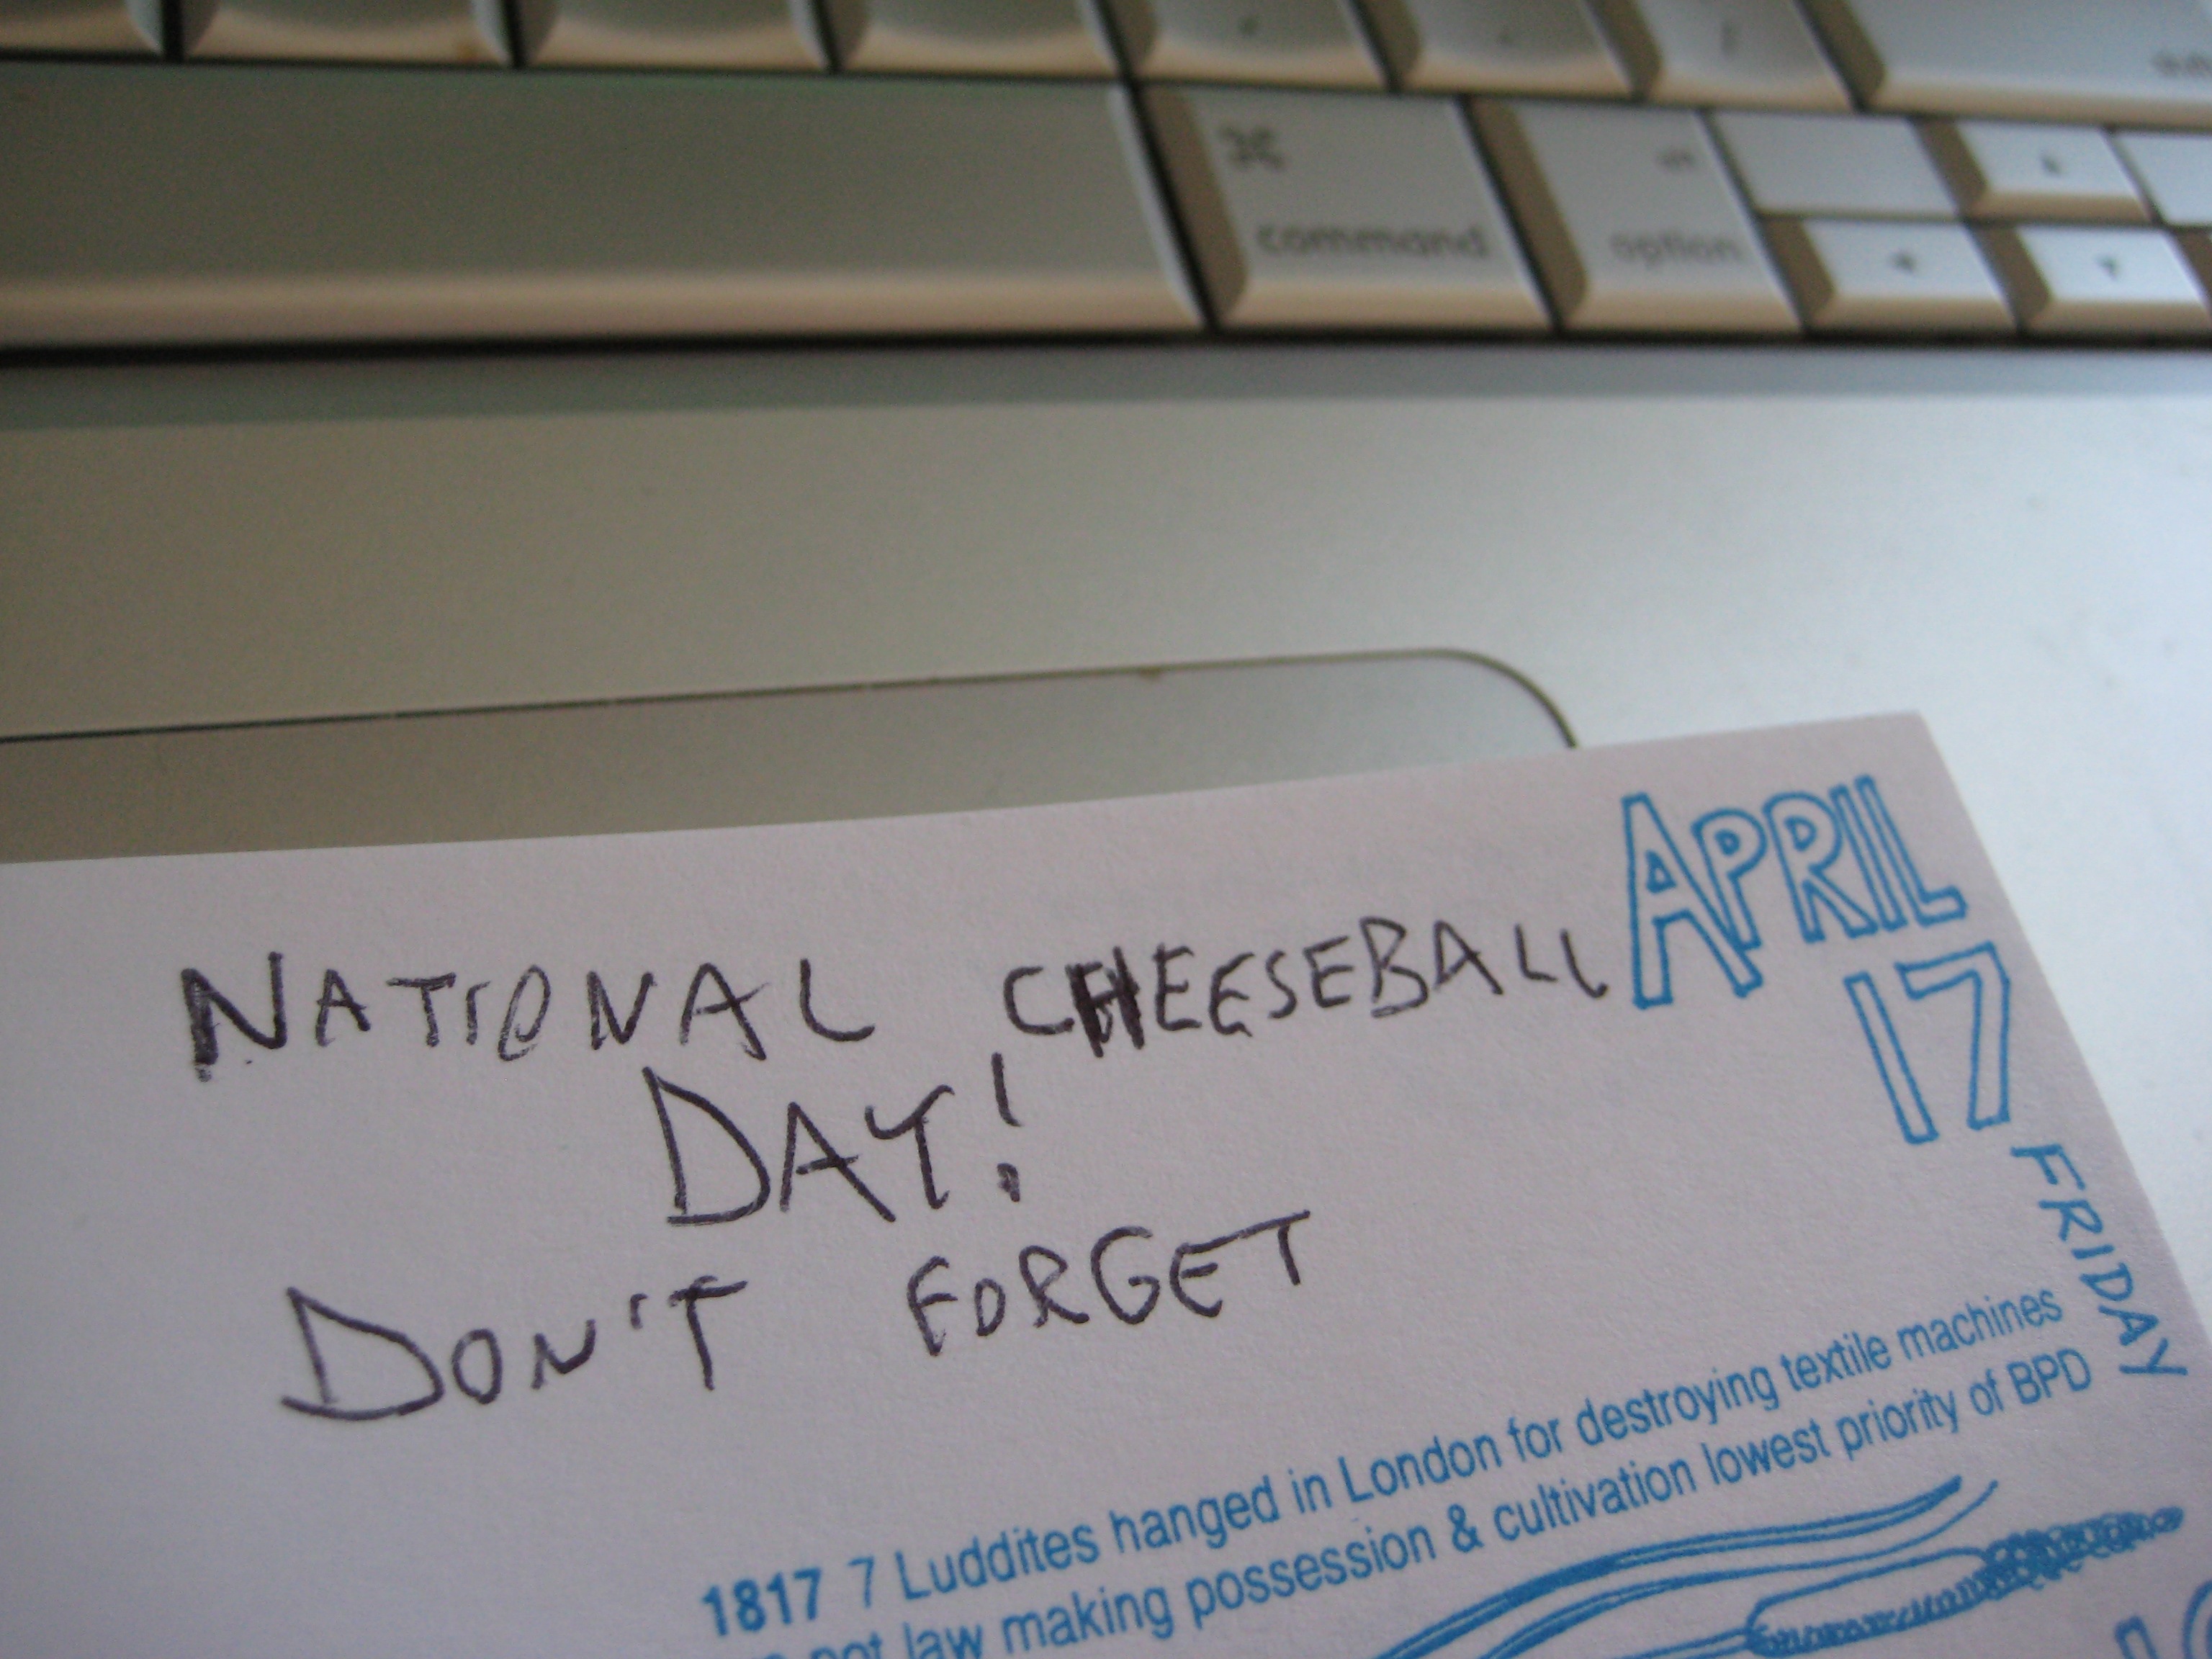 command
option
NATIONAL CHEESEBALL
DAY!
DON'T FORGET
APRIL
17
FRIDAY
1817 7 Luddites hanged in London for destroying textile machines
pot law making possession & cultivation lowest priority of BPD